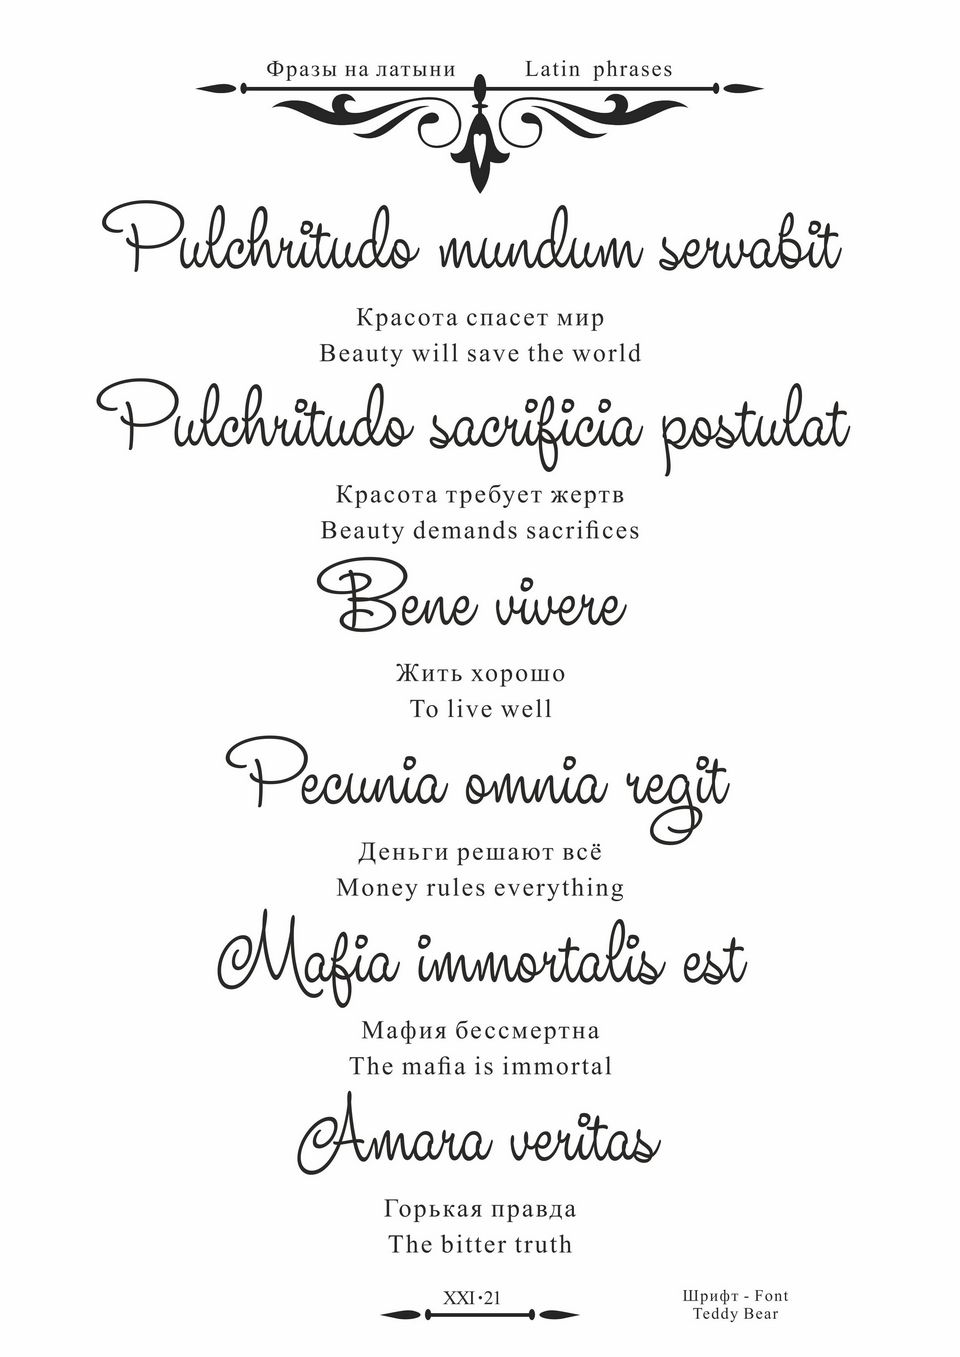 Фразы на латыни Latin phrases
Pulchritudo mundum servabit
Красота спасет мир
Beauty will save the world
Pulchritudo sacrificia postulat
Красота требует жертв
Beauty demands sacrifices
Bene vivere
Жить хорошо
To live well
Pecunia omnia regit
Деньги решают всё
Money rules everything
Mafia immortalis est
Мафия бессмертна
The mafia is immortal
Amara veritas
Горькая правда
The bitter truth
XXI·21
Шрифт - Font
Teddy Bear